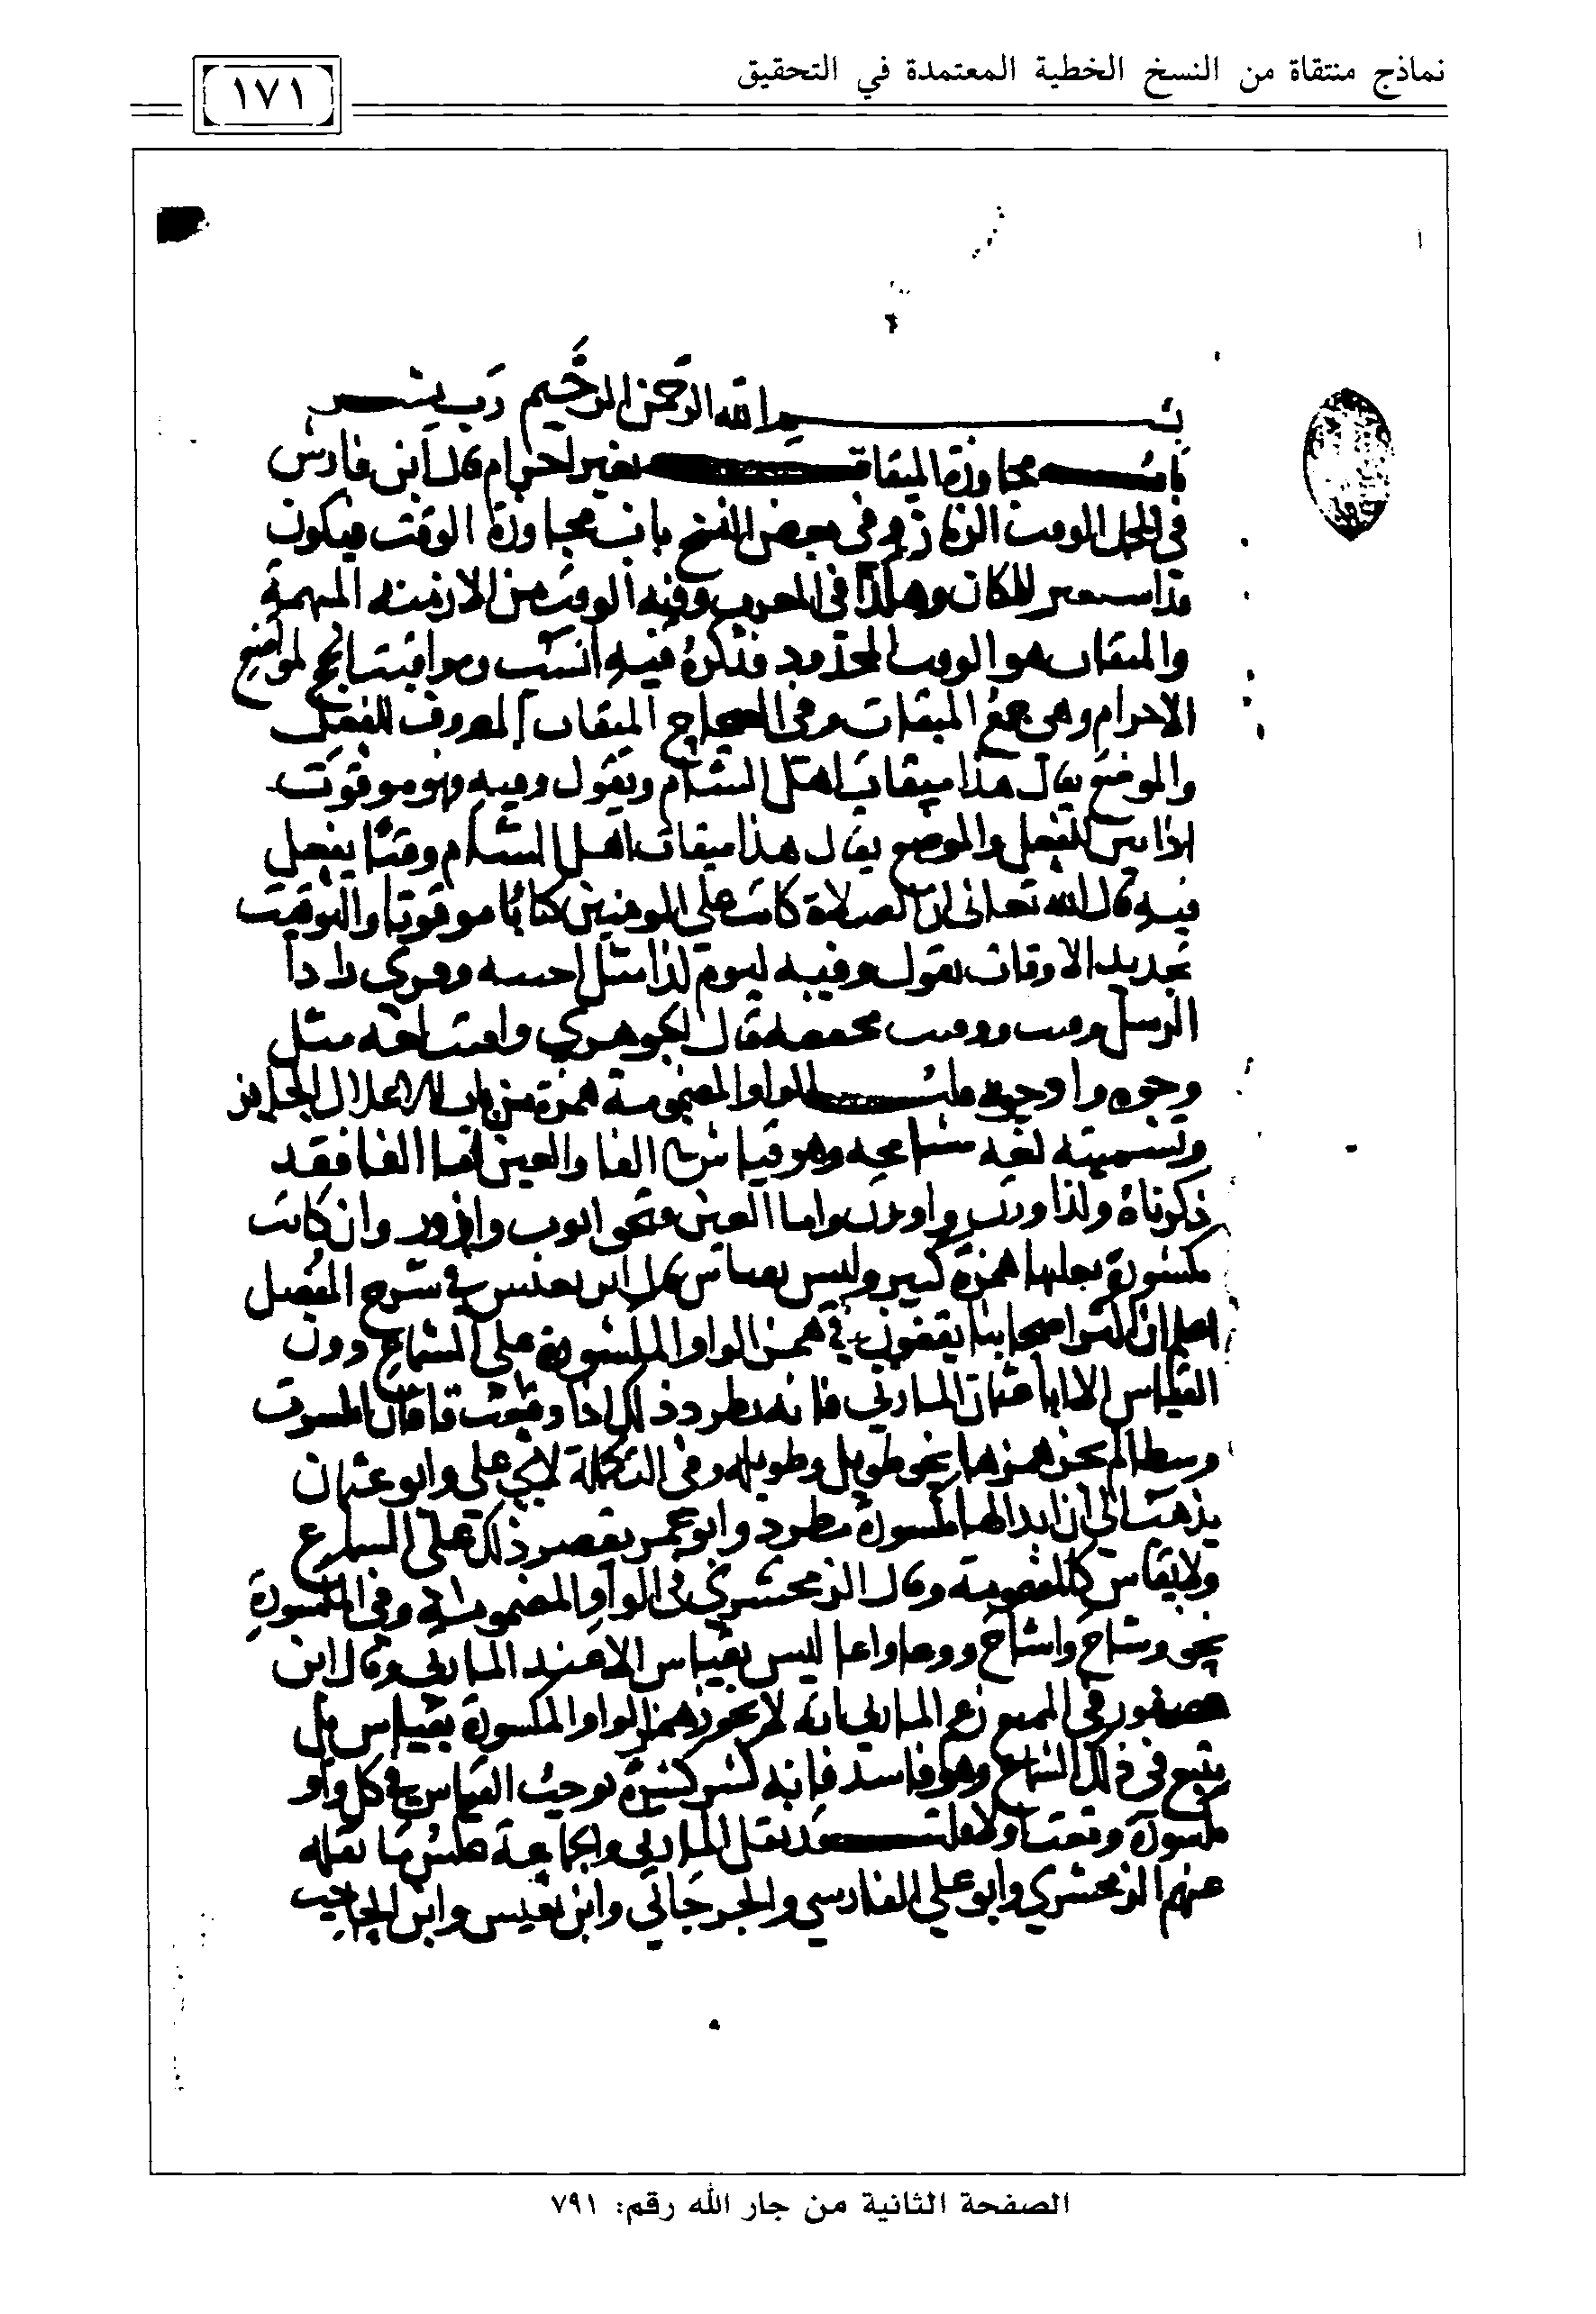 نماذج منتقاة من النسخ الخطية المعتمدة في التحقيق
١٧١
بسم الله الرحمن الرحيم رب يسر
باب مجاوزة الميقات بغير احرام قال ابن فارس
في المجمل الوقت الزمان وفي بعض النسخ باب مجاوزة الوقت فيكون
قد استعير للمكان وهكذا في المغرب وفيه الوقت من الازمنة المبهمة
والميقات هو الوقت المحدود وتذكره فيه انسب ومواقيت الحج لمواضع
الاحرام وهي جمع الميقات وفي الصحاح الميقات المضروف للفعل
والموضع يقال هذا ميقات اهل الشام وتقول وقته فهو موقوت
اذا بين للفعل والموضع يقال هذا ميقات اهل الشام وقتا يفعل
فيه قال الله تعالى ان الصلاة كانت على المومنين كتابا موقوتا والتوقيت
تحديد الاوقات تقول وقته ليوم كذا مثل اجله وقري واذا
الرسل وقت ووقت مخففه قال الجوهري واقتت لغه مثل
وجوه واوجوه قلت الواو المضمومة همزة من باب الاعلال الجايز
وتسميته لغه وهو قياس في الفا والعين اما الفا فقد
ذكرناه ولذا اورب واما العين فنحو اثوب وادور وان كانت
مكسورة فجعلها همزة كثير وليس بقياس قال ابن يعيش في شرح المفصل
اعلم ان اكثر اصحابنا يقفون في همز الواو المكسورة على السماع دون
القياس الا ابا عثمان المازني فانه يطرد ذلك اذا وقعت فا فان انكسرت
وسطا لم يجز همزها نحو طويل وطويله وفي التكملة لابي علي وابو عثمان
يذهب الى ان ابدالها مكسورة مطرد وابو عمر يقصر ذلك على السماع
ولا يقاس كالمضمومة وقال الزمخشري في الواو المضمومة وفي المكسورة
نحو وشاح واشاح ووعا واعا ليس بقياس الا عند المازني وقال ابن
عصفور في الممتع زعم المازني انه لا يجوز همز الواو المكسورة بقياس بل
يتبع في ذلك السماع وهو فاسد فانه كثر كثرة توجب القياس في كل واو
مكسورة وقعت اولا قلت نقل المازني والجماعة عكس ما نقله
عنهم الزمخشري وابو علي الفارسي والجرجاني وابن يعيش وابن الحاجب
الصفحة الثانية من جار الله رقم: ٧٩١